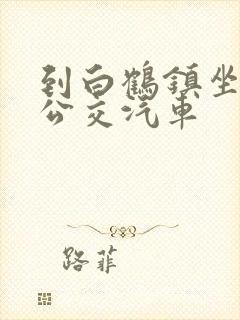 到白鶴鎮坐
公交汽車
路菲